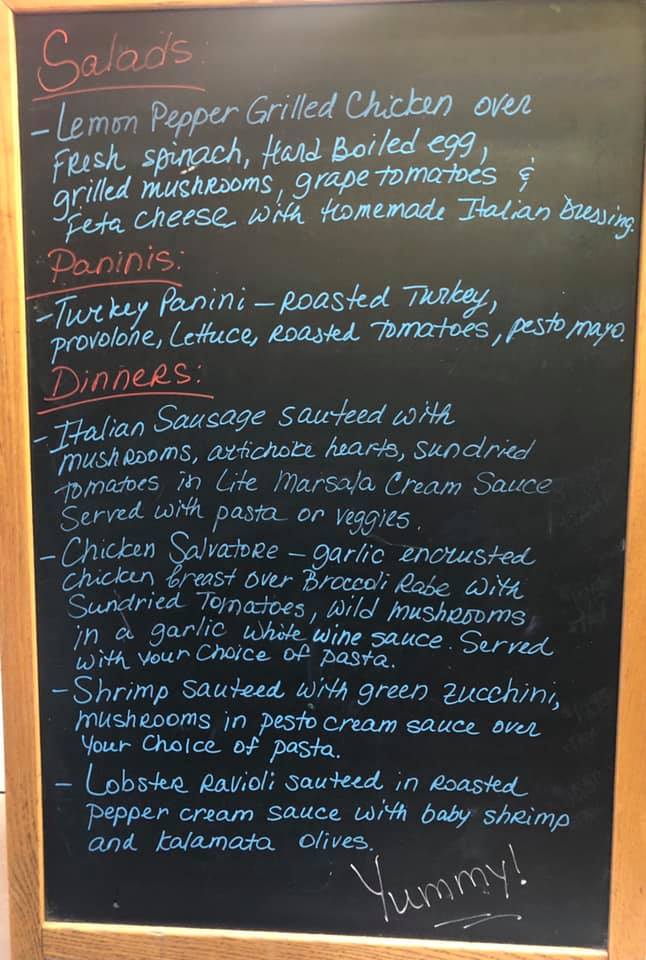 Salads:
- Lemon Pepper Grilled Chicken over
Fresh spinach, Hard Boiled egg,
grilled mushrooms, grape tomatoes &
Feta Cheese with Homemade Italian Dressing.
Paninis:
- Turkey Panini - Roasted Turkey,
provolone, Lettuce, Roasted Tomatoes, pesto mayo.
Dinners:
- Italian Sausage sauteed with
mushrooms, artichoke hearts, sundried
tomatoes in Lite Marsala Cream Sauce
Served with pasta or veggies.
- Chicken Salvatore - garlic encrusted
chicken breast over Broccoli Rabe with
Sundried Tomatoes, wild mushrooms
in a garlic white wine sauce. Served
with your choice of pasta.
- Shrimp sauteed with green zucchini,
mushrooms in pesto cream sauce over
your choice of pasta.
- Lobster Ravioli sauteed in Roasted
pepper cream sauce with baby shrimp
and kalamata olives.
Yummy!